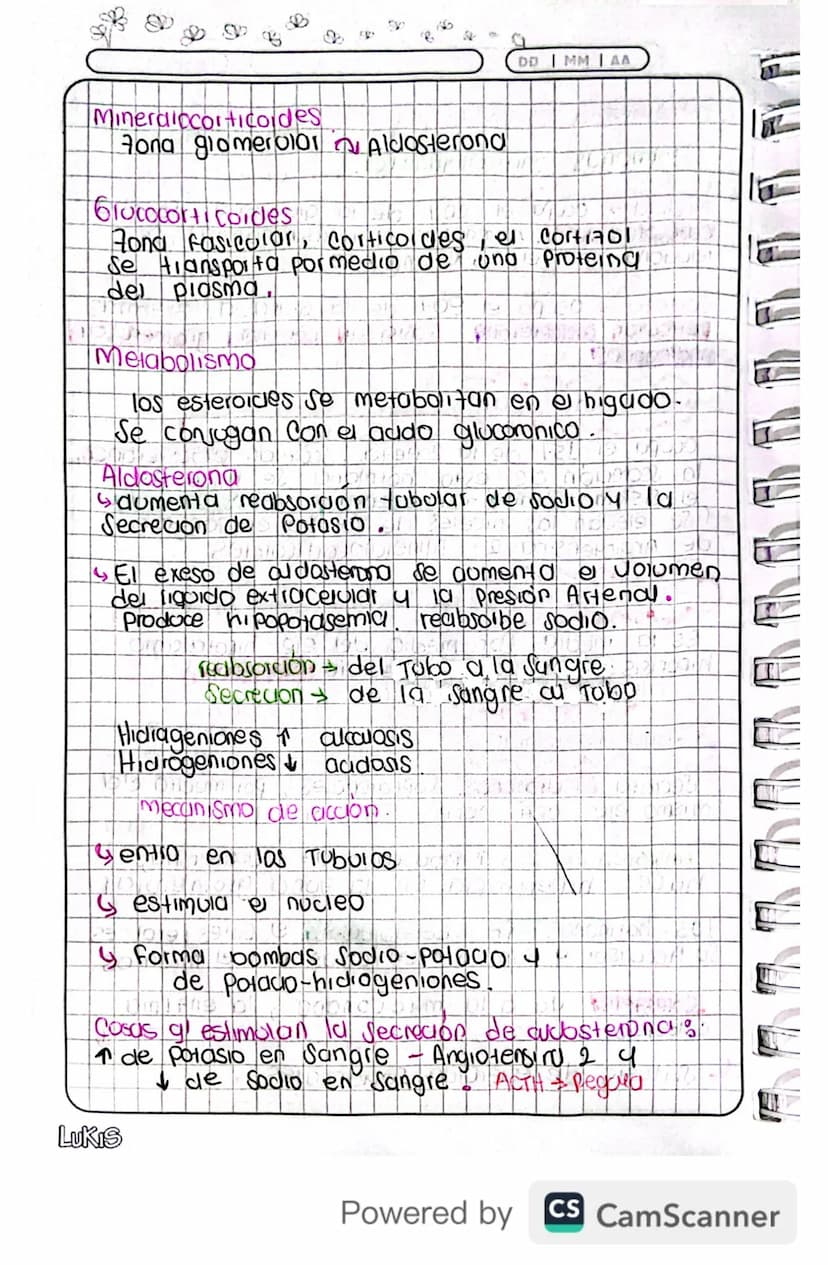 DD | MM | AA
Mineralocorticoides
Zona glomerular ~ Aldosterona
Glucocorticoides
Zona Fasicular, corticoides, el cortizol
se transporta por medio de una proteina
del plasma.
Metabolismo
los esteroides se metabolizan en el higado.
Se conjugan con el acido glucoronico.
Aldosterona
↳ aumenta reabsorción tubular de sodio y la
secreción de Potasio.
↳ El exeso de aldosterona se aumenta el volumen
del liquido extracelular y la Presión Arterial.
Produce hipopotasemia. reabsorbe sodio.
reabsorción → del Tubo a la Sangre.
Secreción → de la sangre al Tubo
Hidrogeniones ↑ alcalosis
Hidrogeniones ↓ acidosis
mecanismo de acción.
↳ entra en los Tubulos
↳ estimula el nucleo
↳ Forma bombas Sodio-potacio y
de potacio-hidrogeniones.
Cosas q' estimulan la secreción de aldosterona:
↑ de potasio en sangre - Angiotensina 2 y
↓ de Sodio en Sangre. ACTH → Regula
LUKIS
Powered by CS CamScanner